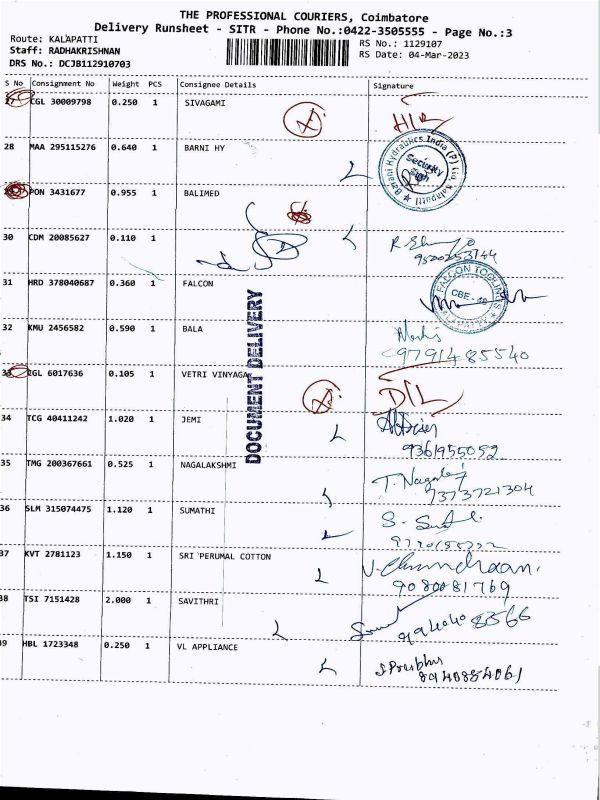 THE PROFESSIONAL COURIERS, Coimbatore
Delivery Runsheet - SITR - Phone No.:0422-3505555 - Page No.:3
Route: KALAPATTI
Staff: RADHAKRISHNAN
DRS No.: DCJB112910703
RS No.: 1129107
RS Date: 04-Mar-2023
S No Consignment No Weight PCS Consignee Details Signature
27 CGL 30009798 0.250 1 SIVAGAMI
28 MAA 295115276 0.640 1 BARNI HY
Barani Hydraulics India (P) Ltd, Kalapatti
Security
Sign
29 PON 3431677 0.955 1 BALIMED
30 CDM 20085627 0.110 1
9500253144
31 HRD 378040687 0.360 1 FALCON
FALCON TOOLINGS
CBE - 48
KALAPATTY
32 KMU 2456582 0.590 1 BALA
9791485540
33 CGL 6017636 0.105 1 VETRI VINYAGA
D/L
DOCUMENT DELIVERY
34 TCG 40411242 1.020 1 JEMI
9361955052
35 TMG 200367661 0.525 1 NAGALAKSHMI
T. Nagalaxmi
7373721304
36 SLM 315074475 1.120 1 SUMATHI
37 KVT 2781123 1.150 1 SRI PERUMAL COTTON
9080081769
38 TSI 7151428 2.000 1 SAVITHRI
39 HBL 1723348 0.250 1 VL APPLIANCE
S. Prabhu
8940884061